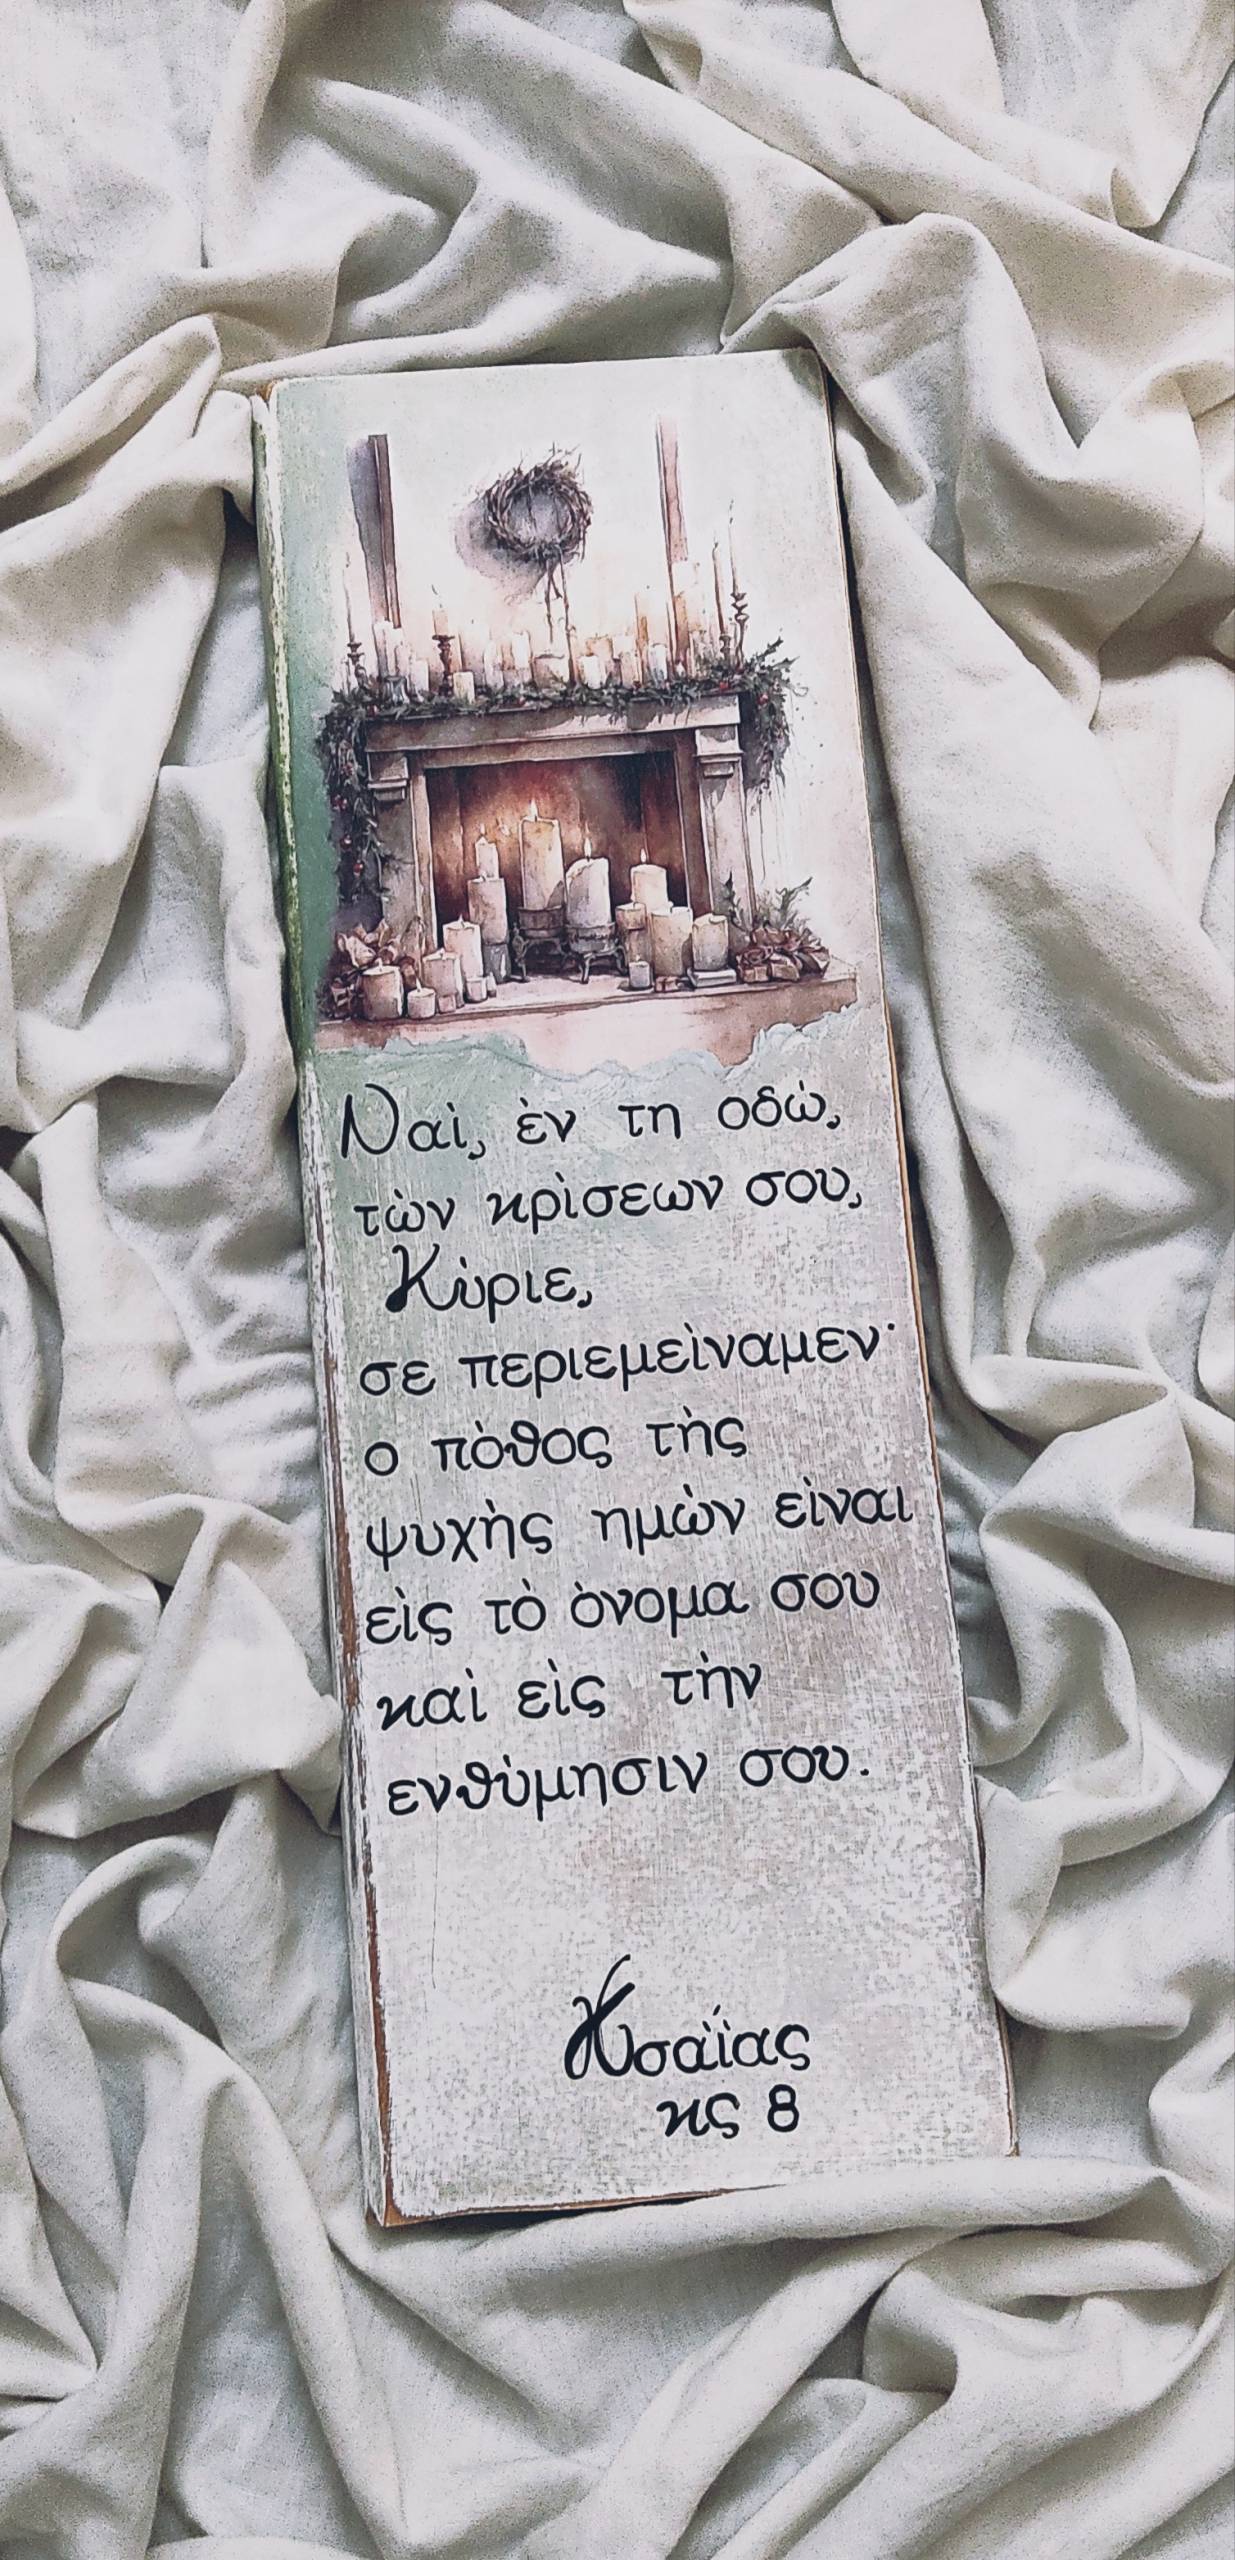 Ναὶ, ὲν τη οδὼ,
τὼν κρὶσεων σου,
Κὺριε,
σε περιεμεὶναμεν·
ο πὸθος τὴς
ψυχὴς ημὼν εὶναι
εὶς τὸ ὸνομα σου
καὶ εὶς τὴν
ενθὺμησιν σου.
Ησαΐας
κς 8